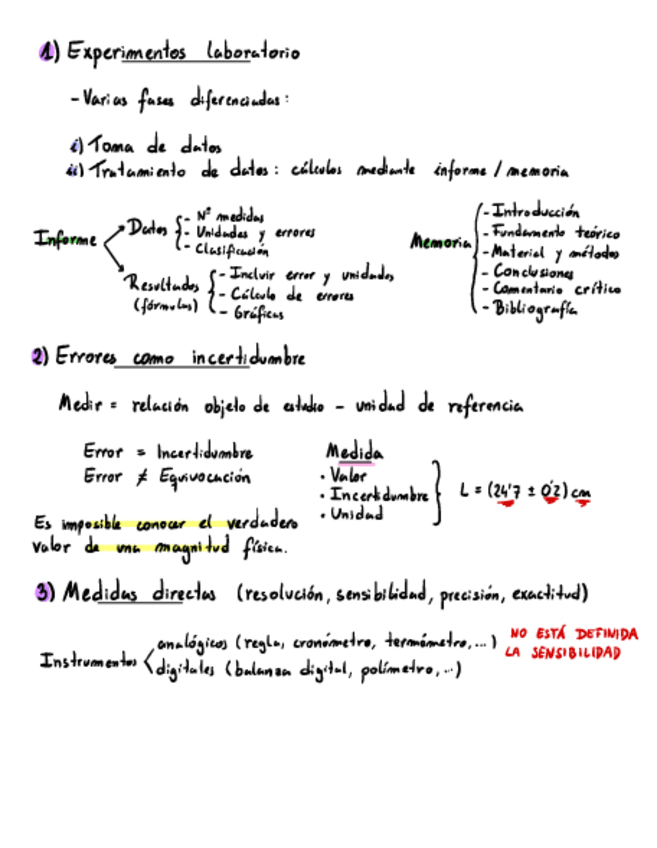 1) Experimentos laboratorio
- Varias fases diferenciadas:
i) Toma de datos
ii) Tratamiento de datos: cálculos mediante informe / memoria
Informe
Datos
- Nº medidas
- Unidades y errores
- Clasificación
Resultados
(fórmulas)
- Incluir error y unidades
- Cálculo de errores
- Gráficas
Memoria
- Introducción
- Fundamento teórico
- Material y métodos
- Conclusiones
- Comentario crítico
- Bibliografía
2) Errores como incertidumbre
Medir = relación objeto de estudio - unidad de referencia
Error = Incertidumbre
Error ≠ Equivocación
Medida
· Valor
· Incertidumbre
· Unidad
L = (24'7 ± 0'2) cm
Es imposible conocer el verdadero
valor de una magnitud física.
3) Medidas directas (resolución, sensibilidad, precisión, exactitud)
Instrumentos
analógicos (regla, cronómetro, termómetro,...)
digitales (balanza digital, polímetro,...)
NO ESTÁ DEFINIDA
LA SENSIBILIDAD